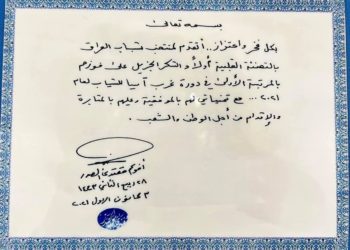 بسمه تعالى
بكل فخر واعتزاز.. أتقدم لمنتخب شباب العراق
بالتهنئة القلبية أولاً والشكر الجزيل على فوزهم
بالمرتبة الأولى في دورة غرب آسيا للشباب لعام
٢٠٢١... مع تمنياتي لهم بالموفقية وعليهم بالمثابرة
والإقدام من أجل الوطن والشعب.
أخوكم مقتدى الصدر
٢٨ ربيع الثاني ١٤٤٣
٣ كانون الاول ٢٠٢١